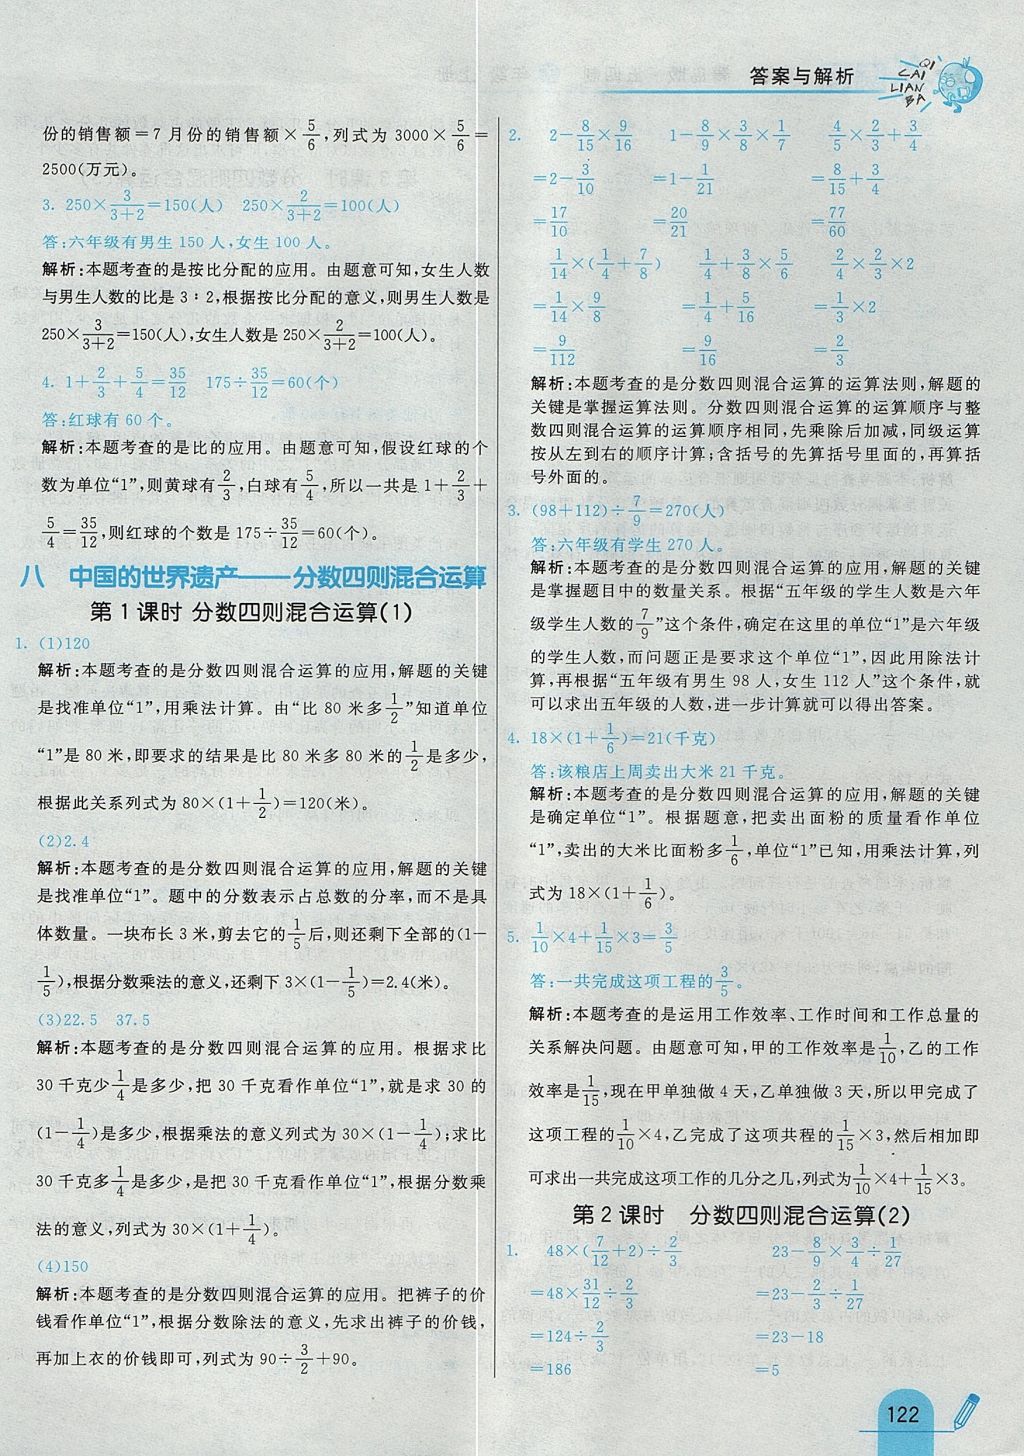 答案与解析
QI
CAI
LIAN
BA
份的销售额=7 月份的销售额×5/6,列式为 3000×5/6=
2500(万元)。
3. 250×3/(3+2)=150(人) 250×2/(3+2)=100(人)
答:六年级有男生 150 人,女生 100 人。
解析:本题考查的是按比分配的应用。由题意可知,女生人数
与男生人数的比是 3∶2,根据按比分配的意义,则男生人数是
250×3/(3+2)=150(人),女生人数是 250×2/(3+2)=100(人)。
4. 1+2/3+5/4=35/12 175÷35/12=60(个)
答:红球有 60 个。
解析:本题考查的是比的应用。由题意可知,假设红球的个
数为单位“1”,则黄球有2/3,白球有5/4,所以一共是 1+2/3+
5/4=35/12,则红球的个数是 175÷35/12=60(个)。
八 中国的世界遗产——分数四则混合运算
第 1 课时 分数四则混合运算(1)
1. (1)120
解析:本题考查的是分数四则混合运算的应用,解题的关键
是找准单位“1”,用乘法计算。由“比 80 米多1/2”知道单位
“1”是 80 米,即要求的结果是比 80 米多 80 米的1/2是多少,
根据此关系列式为 80×(1+1/2)=120(米)。
(2)2.4
解析:本题考查的是分数四则混合运算的应用,解题的关键
是找准单位“1”。题中的分数表示占总数的分率,而不是具
体数量。一块布长 3 米,剪去它的1/5后,则还剩下全部的(1-
1/5),根据分数乘法的意义,还剩下 3×(1-1/5)=2.4(米)。
(3)22.5 37.5
解析:本题考查的是分数四则混合运算的应用。根据求比
30 千克少1/4是多少,把 30 千克看作单位“1”,就是求 30 的
(1-1/4)是多少,根据乘法的意义列式为 30×(1-1/4);求比
30 千克多1/4是多少,是把 30 千克看作单位“1”,根据分数乘
法的意义,列式为 30×(1+1/4)。
(4)150
解析:本题考查的是分数四则混合运算的应用。把裤子的价
钱看作单位“1”,根据分数除法的意义,先求出裤子的价钱,
再加上衣的价钱即可,列式为 90÷3/2+90。
2. 2-8/15×9/16 1-8/9×3/8×1/7 4/5×2/3+3/4
=2-3/10 =1-1/21 =8/15+3/4
=17/10 =20/21 =77/60
1/14×(1/4+7/8) 1/4+3/8×5/6 2/4×2/3×2
=1/14×9/8 =1/4+5/16 =1/3×2
=9/112 =9/16 =2/3
解析:本题考查的是分数四则混合运算的运算法则,解题的
关键是掌握运算法则。分数四则混合运算的运算顺序与整
数四则混合运算的运算顺序相同,先乘除后加减,同级运算
按从左到右的顺序计算;含括号的先算括号里面的,再算括
号外面的。
3. (98+112)÷7/9=270(人)
答:六年级有学生 270 人。
解析:本题考查的是分数四则混合运算的应用,解题的关键
是掌握题目中的数量关系。根据“五年级的学生人数是六年
级学生人数的7/9”这个条件,确定在这里的单位“1”是六年级
的学生人数,而问题正是要求这个单位“1”,因此用除法计
算,再根据“五年级有男生 98 人,女生 112 人”这个条件,就
可以求出五年级的人数,进一步计算就可以得出答案。
4. 18×(1+1/6)=21(千克)
答:该粮店上周卖出大米 21 千克。
解析:本题考查的是分数四则混合运算的应用,解题的关键
是确定单位“1”。根据题意,把卖出面粉的质量看作单位
“1”,卖出的大米比面粉多1/6,单位“1”已知,用乘法计算,列
式为 18×(1+1/6)。
5. 1/10×4+1/15×3=3/5
答:一共完成这项工程的3/5。
解析:本题考查的是运用工作效率、工作时间和工作总量的
关系解决问题。由题意可知,甲的工作效率是1/10,乙的工作
效率是1/15,现在甲单独做 4 天,乙单独做 3 天,所以甲完成了
这项工程的1/10×4,乙完成了这项共程的1/15×3,然后相加即
可求出一共完成这项工作的几分之几,列式为1/10×4+1/15×3。
第 2 课时 分数四则混合运算(2)
1. 48×(7/12+2)÷2/3 23-8/9×3/4÷1/27
=48×31/12÷2/3 =23-2/3÷1/27
=124÷2/3 =23-18
=186 =5
122